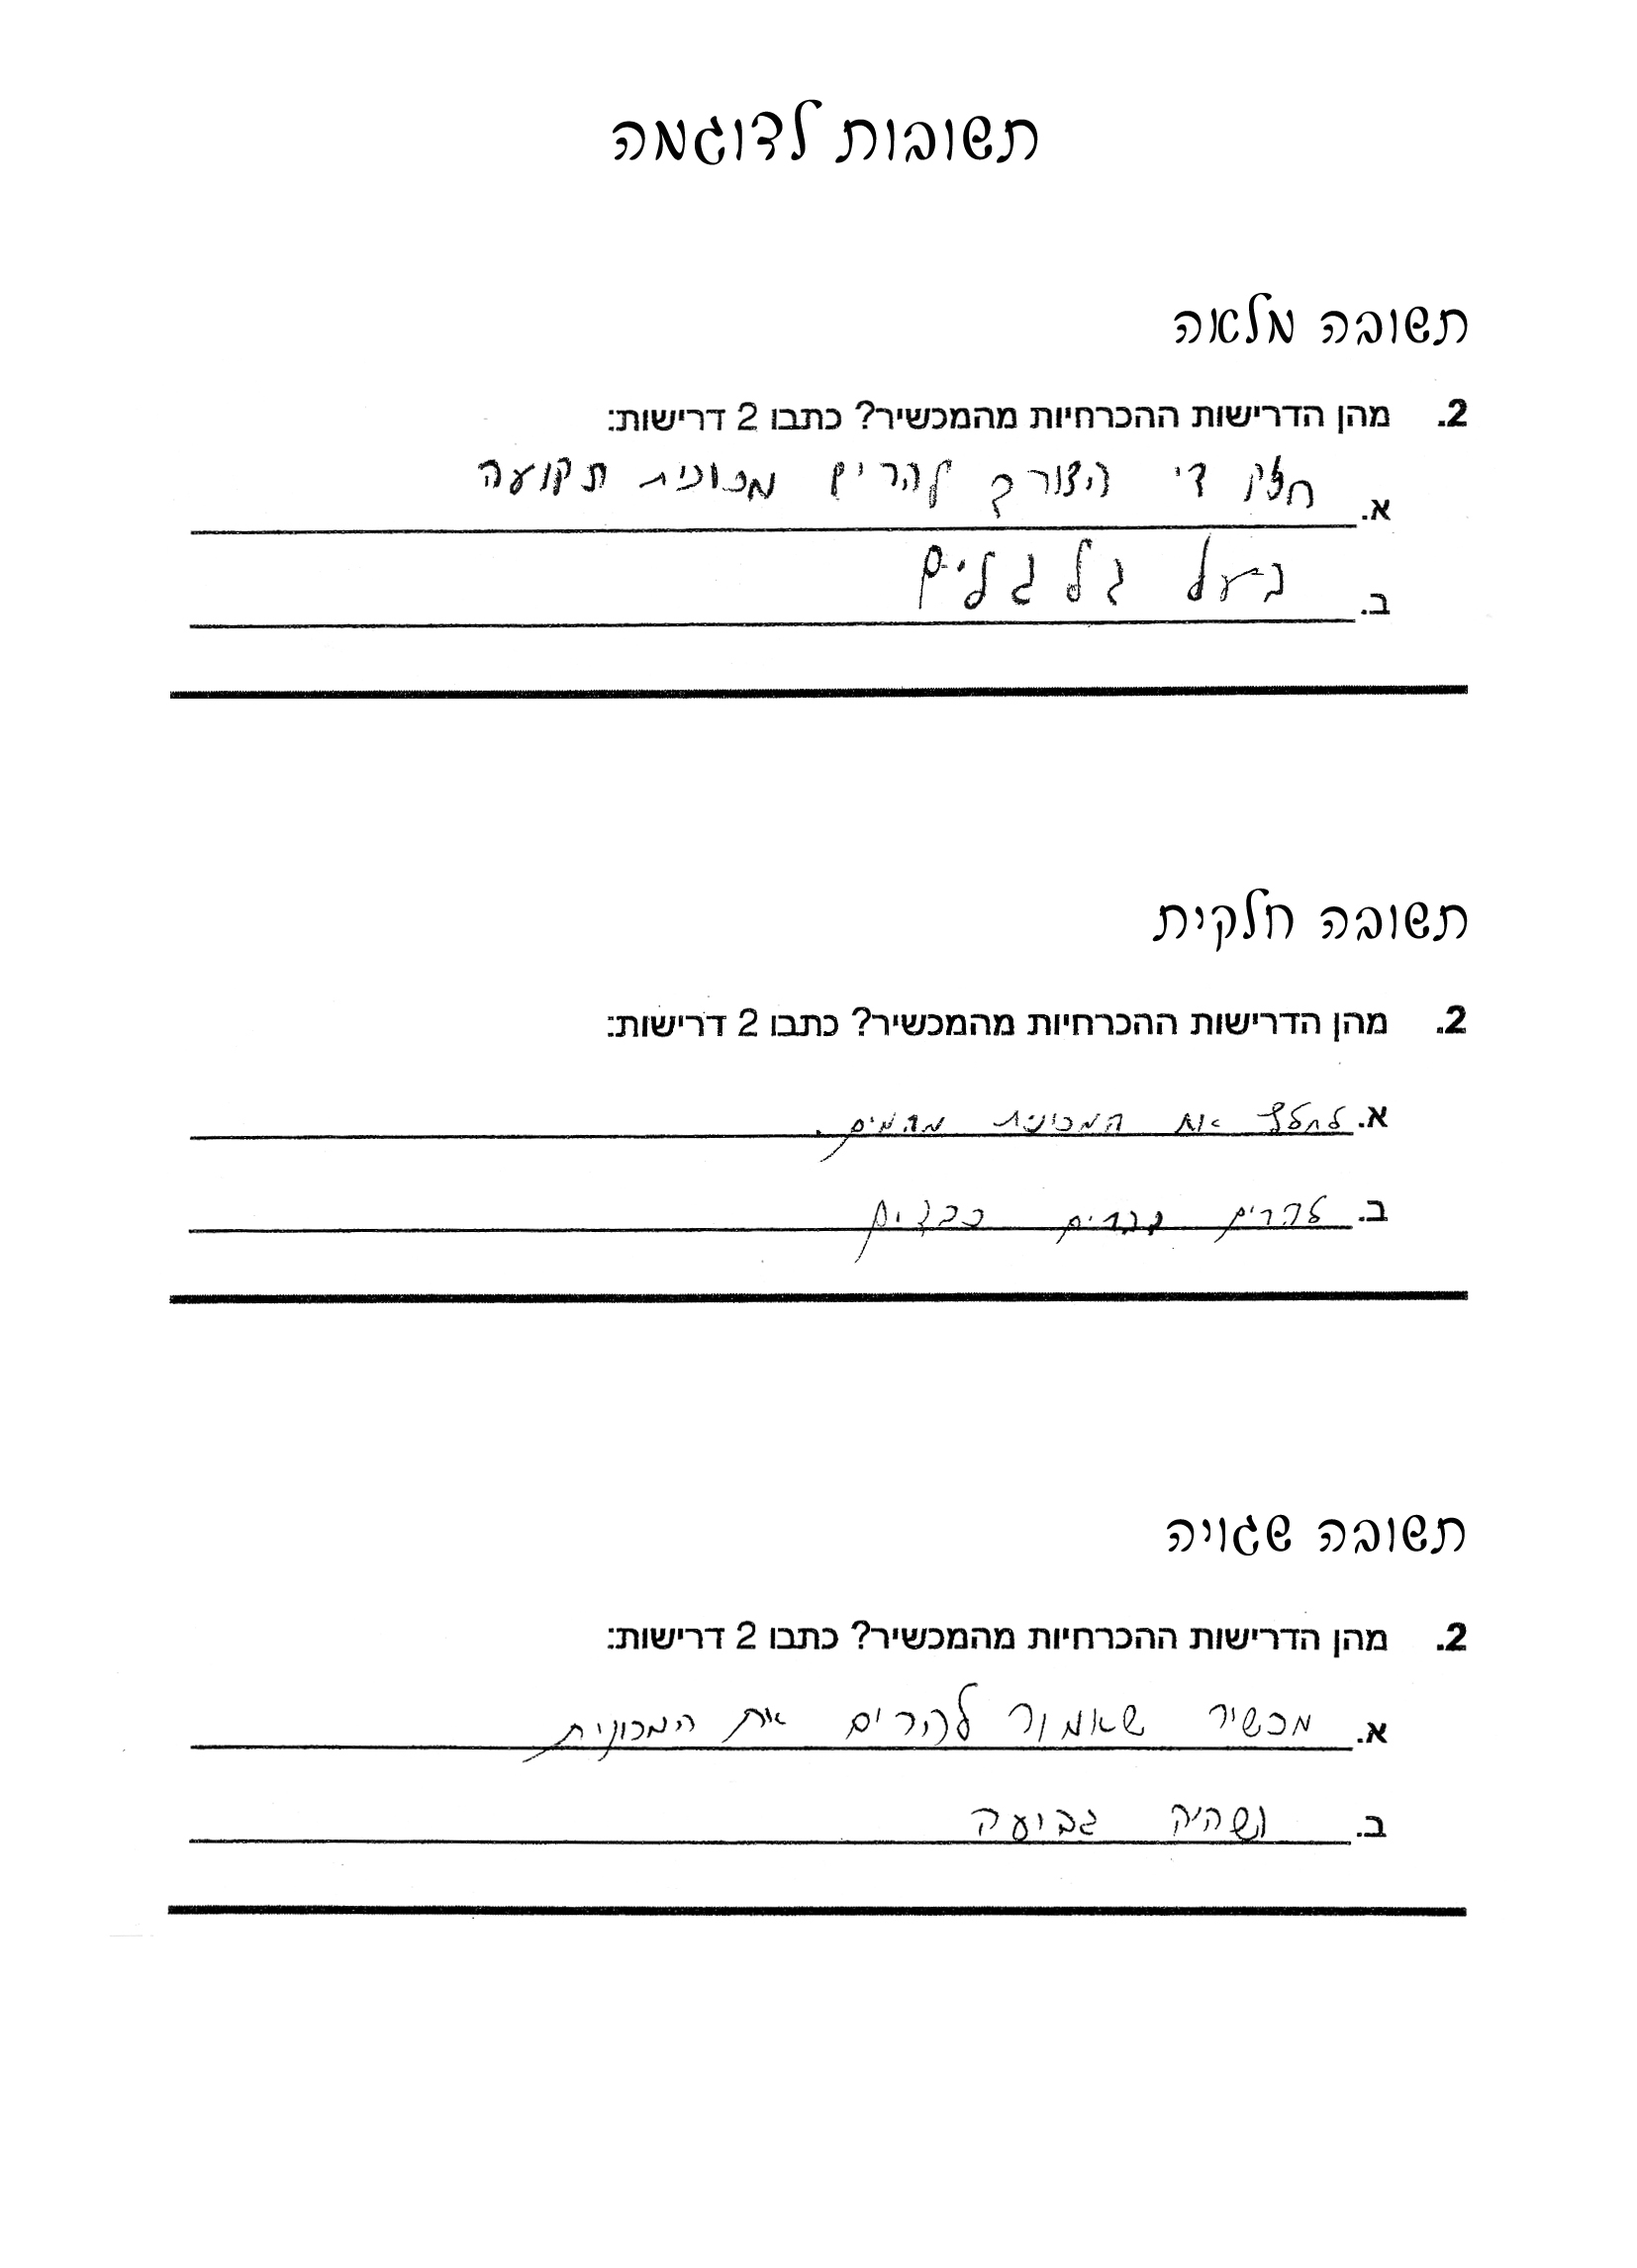 תשובות לדוגמה
תשובה מלאה
2. מהן הדרישות ההכרחיות מהמכשיר? כתבו 2 דרישות:
א. חזק די הצורך להרים מכונית תקועה
ב. בעל גלגלים
תשובה חלקית
2. מהן הדרישות ההכרחיות מהמכשיר? כתבו 2 דרישות:
א. לחלץ את המכונית מהמים.
ב. להרים דברים כבדים
תשובה שגויה
2. מהן הדרישות ההכרחיות מהמכשיר? כתבו 2 דרישות:
א. מכשיר שאמור להרים את המכונית
ב. גביעה